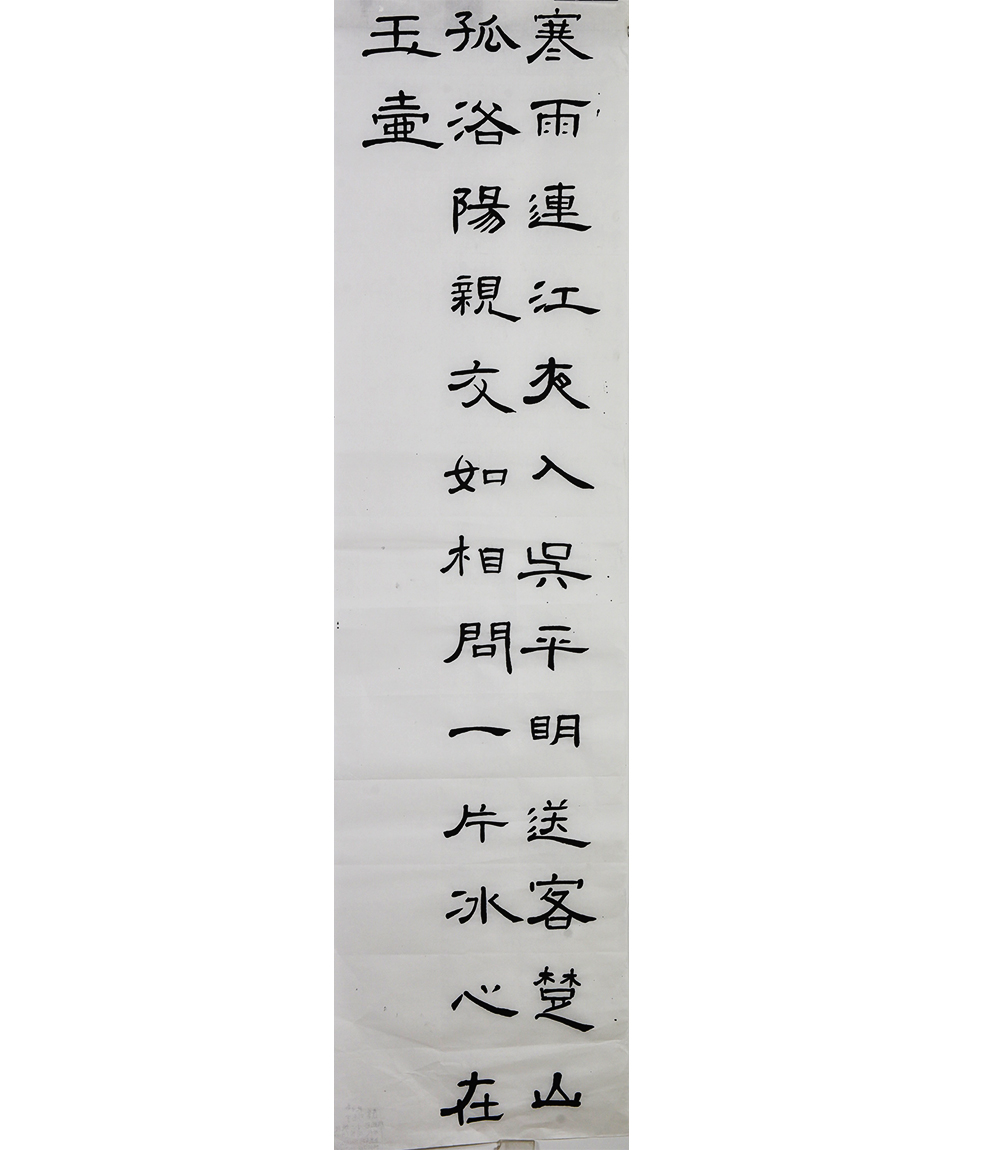 寒雨連江夜入吳平明送客楚山
孤洛陽親友如相問一片冰心在
玉壷